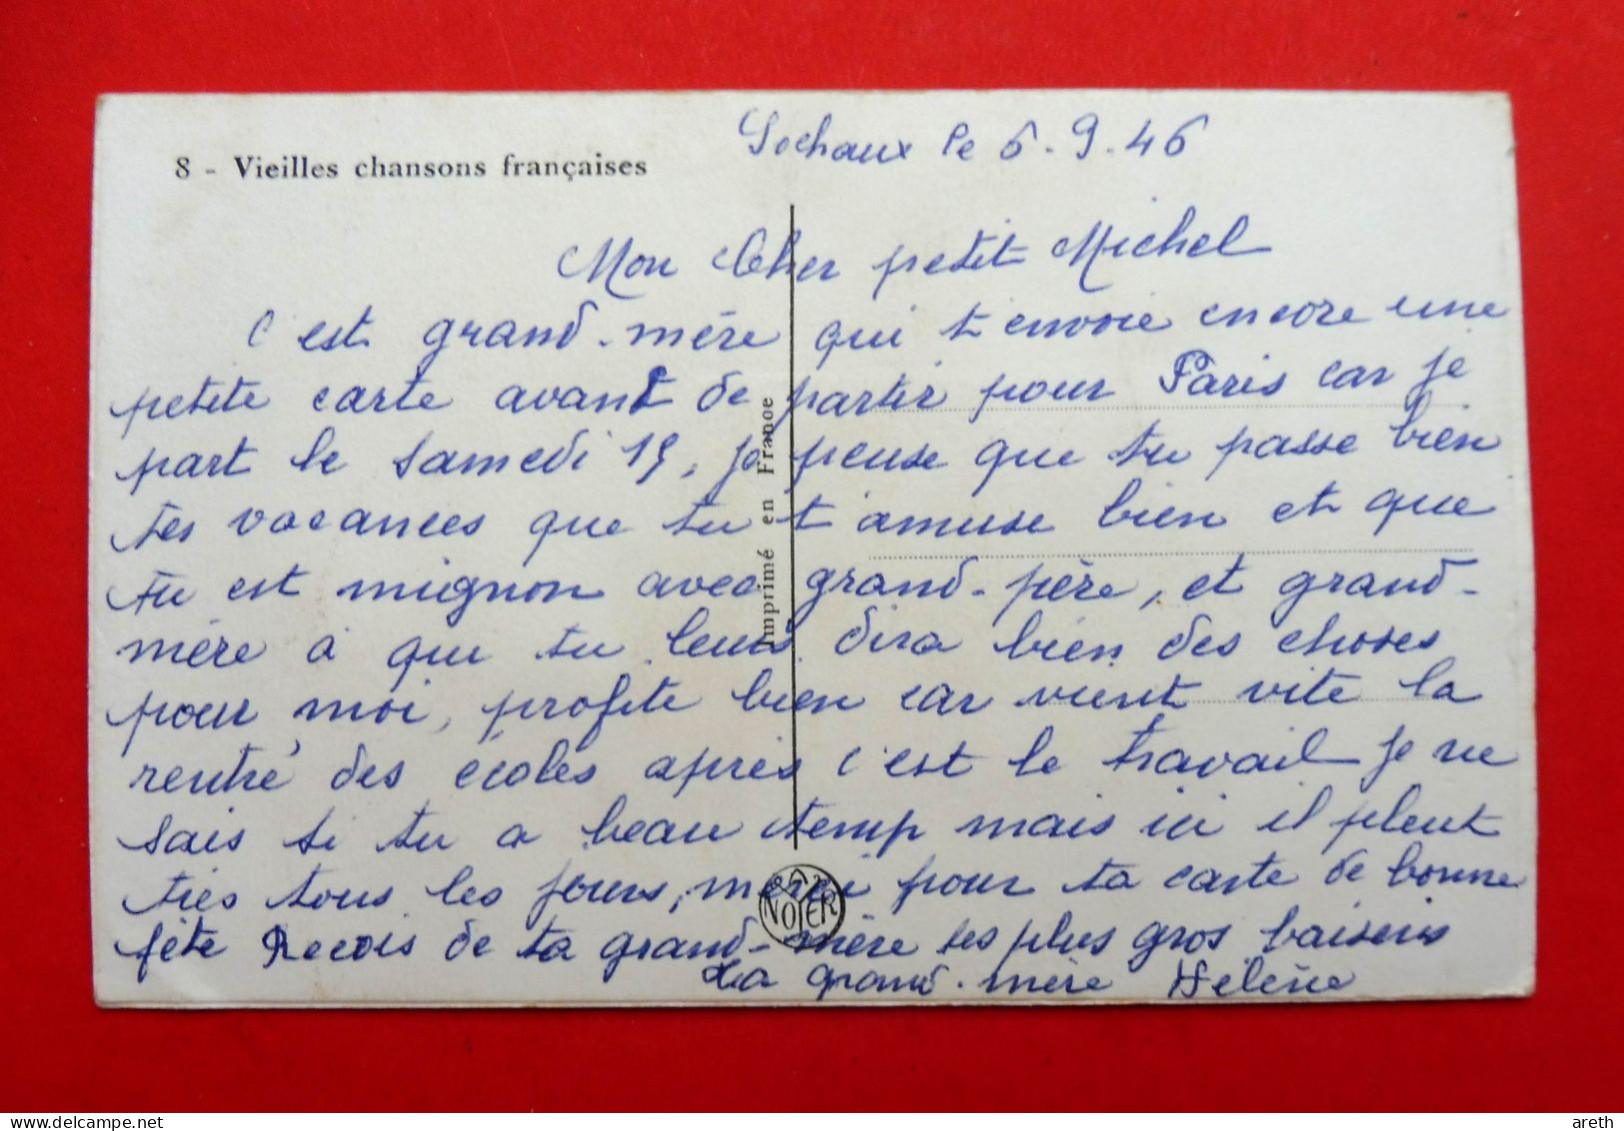 8 - Vieilles chansons françaises
Sochaux le 6.9.46
Mon Cher petit Michel
C'est grand-mère qui t'envoie encore une
petite carte avant de partir pour Paris car je
part le samedi 15, je pense que tu passe bien
tes vacances que tu t'amuse bien et que
tu est mignon avec grand-père, et grand-
mère à qui tu leurs dira bien des choses
pour moi, profite bien car vient vite la
rentré des écoles après c'est le travail je ne
sais si tu a beau temp mais ici il pleut
très tous les jours, merci pour ta carte de bonne
fête Recois de ta grand-mère ses plus gros baisers
La grand-mère Hélène
Imprimé en France
NOYER
areth
delcampe.net